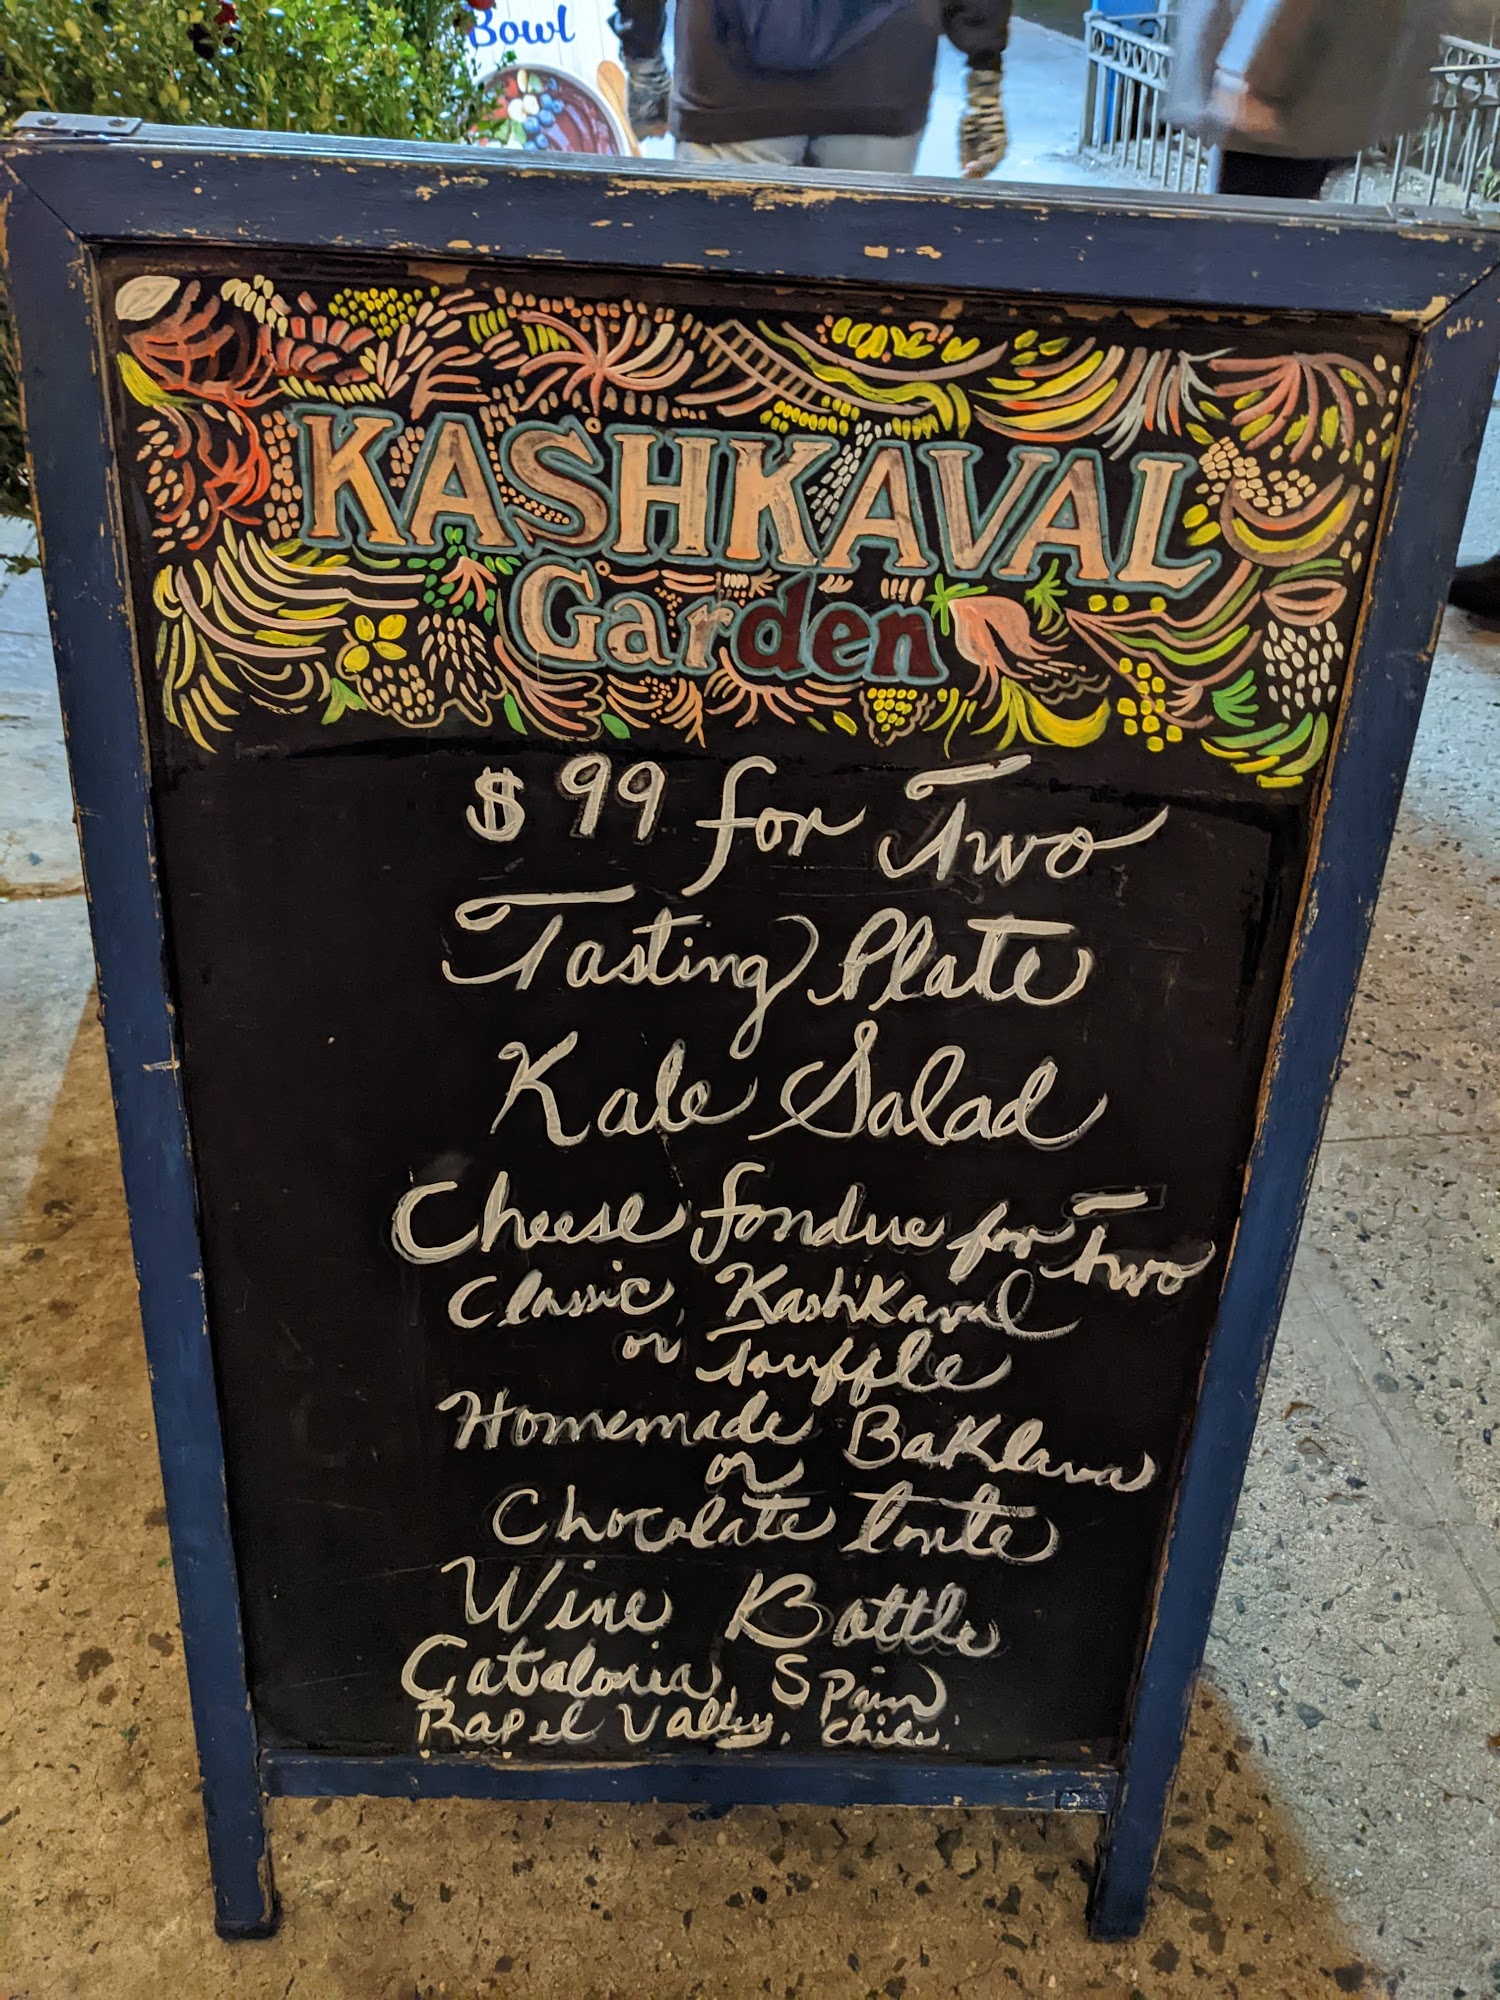 Bowl
KASHKAVAL
Garden
$99 for Two
Tasting Plate
Kale Salad
Cheese fondue for Two
Classic, Kashkaval
or Truffle
Homemade Baklava
or
Chocolate torte
Wine Bottle
Catalonia, Spain
Rapel Valley, Chile